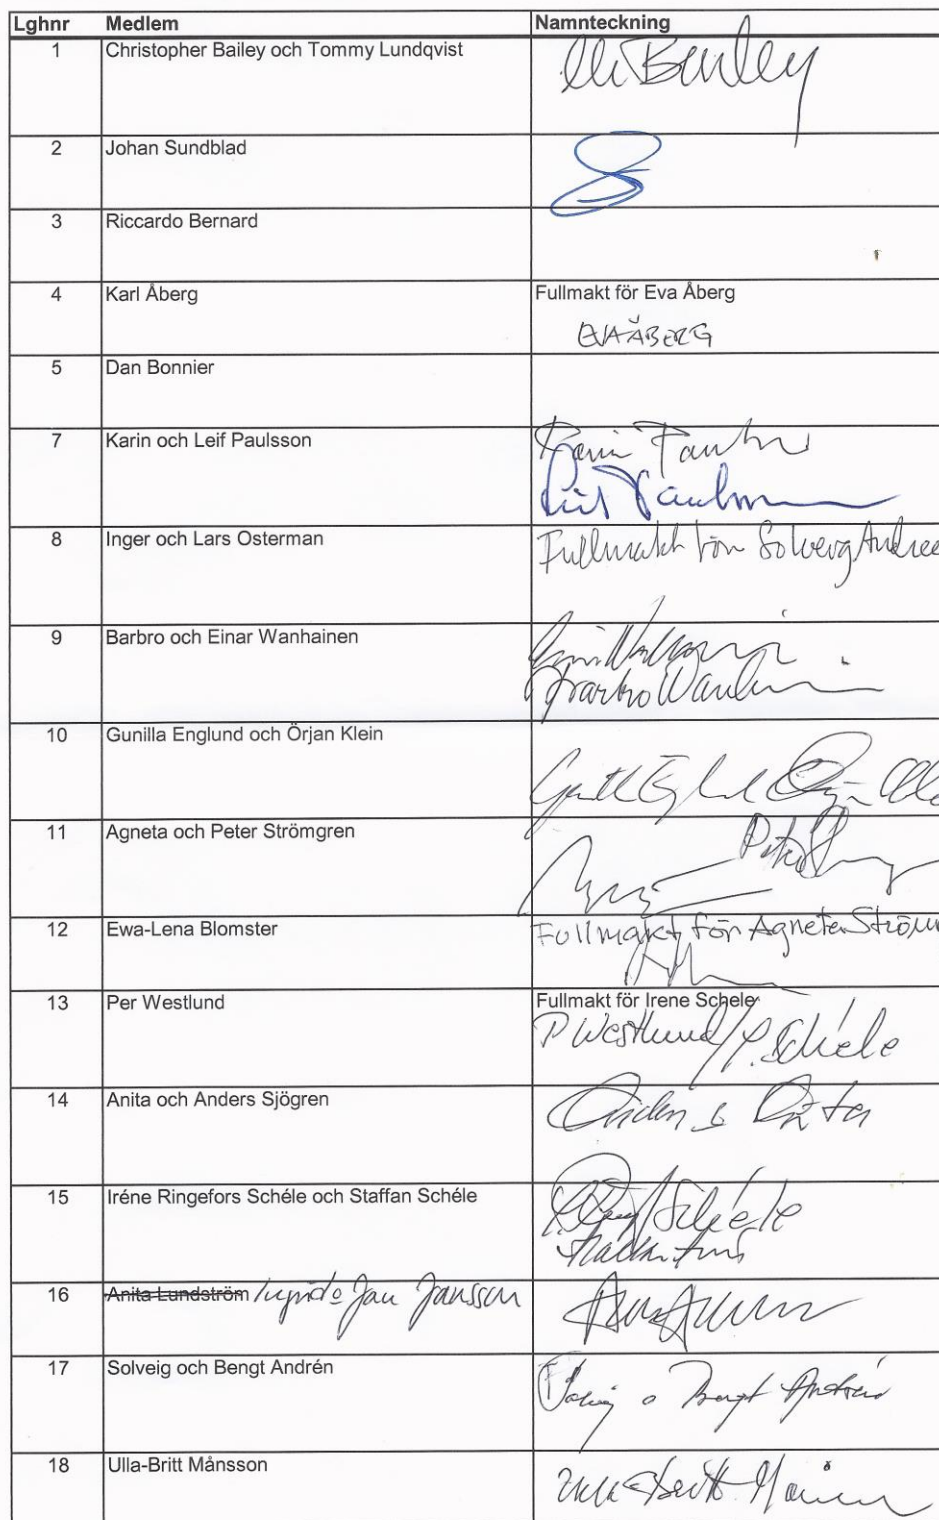 Lghnr Medlem Namnteckning
1 Christopher Bailey och Tommy Lundqvist
2 Johan Sundblad
3 Riccardo Bernard
4 Karl Åberg Fullmakt för Eva Åberg
EVA ÅBERG
5 Dan Bonnier
7 Karin och Leif Paulsson
8 Inger och Lars Osterman Fullmakt för Solveig Andreé
9 Barbro och Einar Wanhainen
10 Gunilla Englund och Örjan Klein
11 Agneta och Peter Strömgren
12 Ewa-Lena Blomster Fullmakt för Agneta Ström
13 Per Westlund Fullmakt för Irene Schele
P Westlund / I. Schéle
14 Anita och Anders Sjögren
15 Iréne Ringefors Schéle och Staffan Schéle
Schéle
16 Anita Lundström / Ingrid o Jan Jansson
17 Solveig och Bengt Andrén
Solveig o Bengt Andrén
18 Ulla-Britt Månsson
Ulla-Britt Månsson